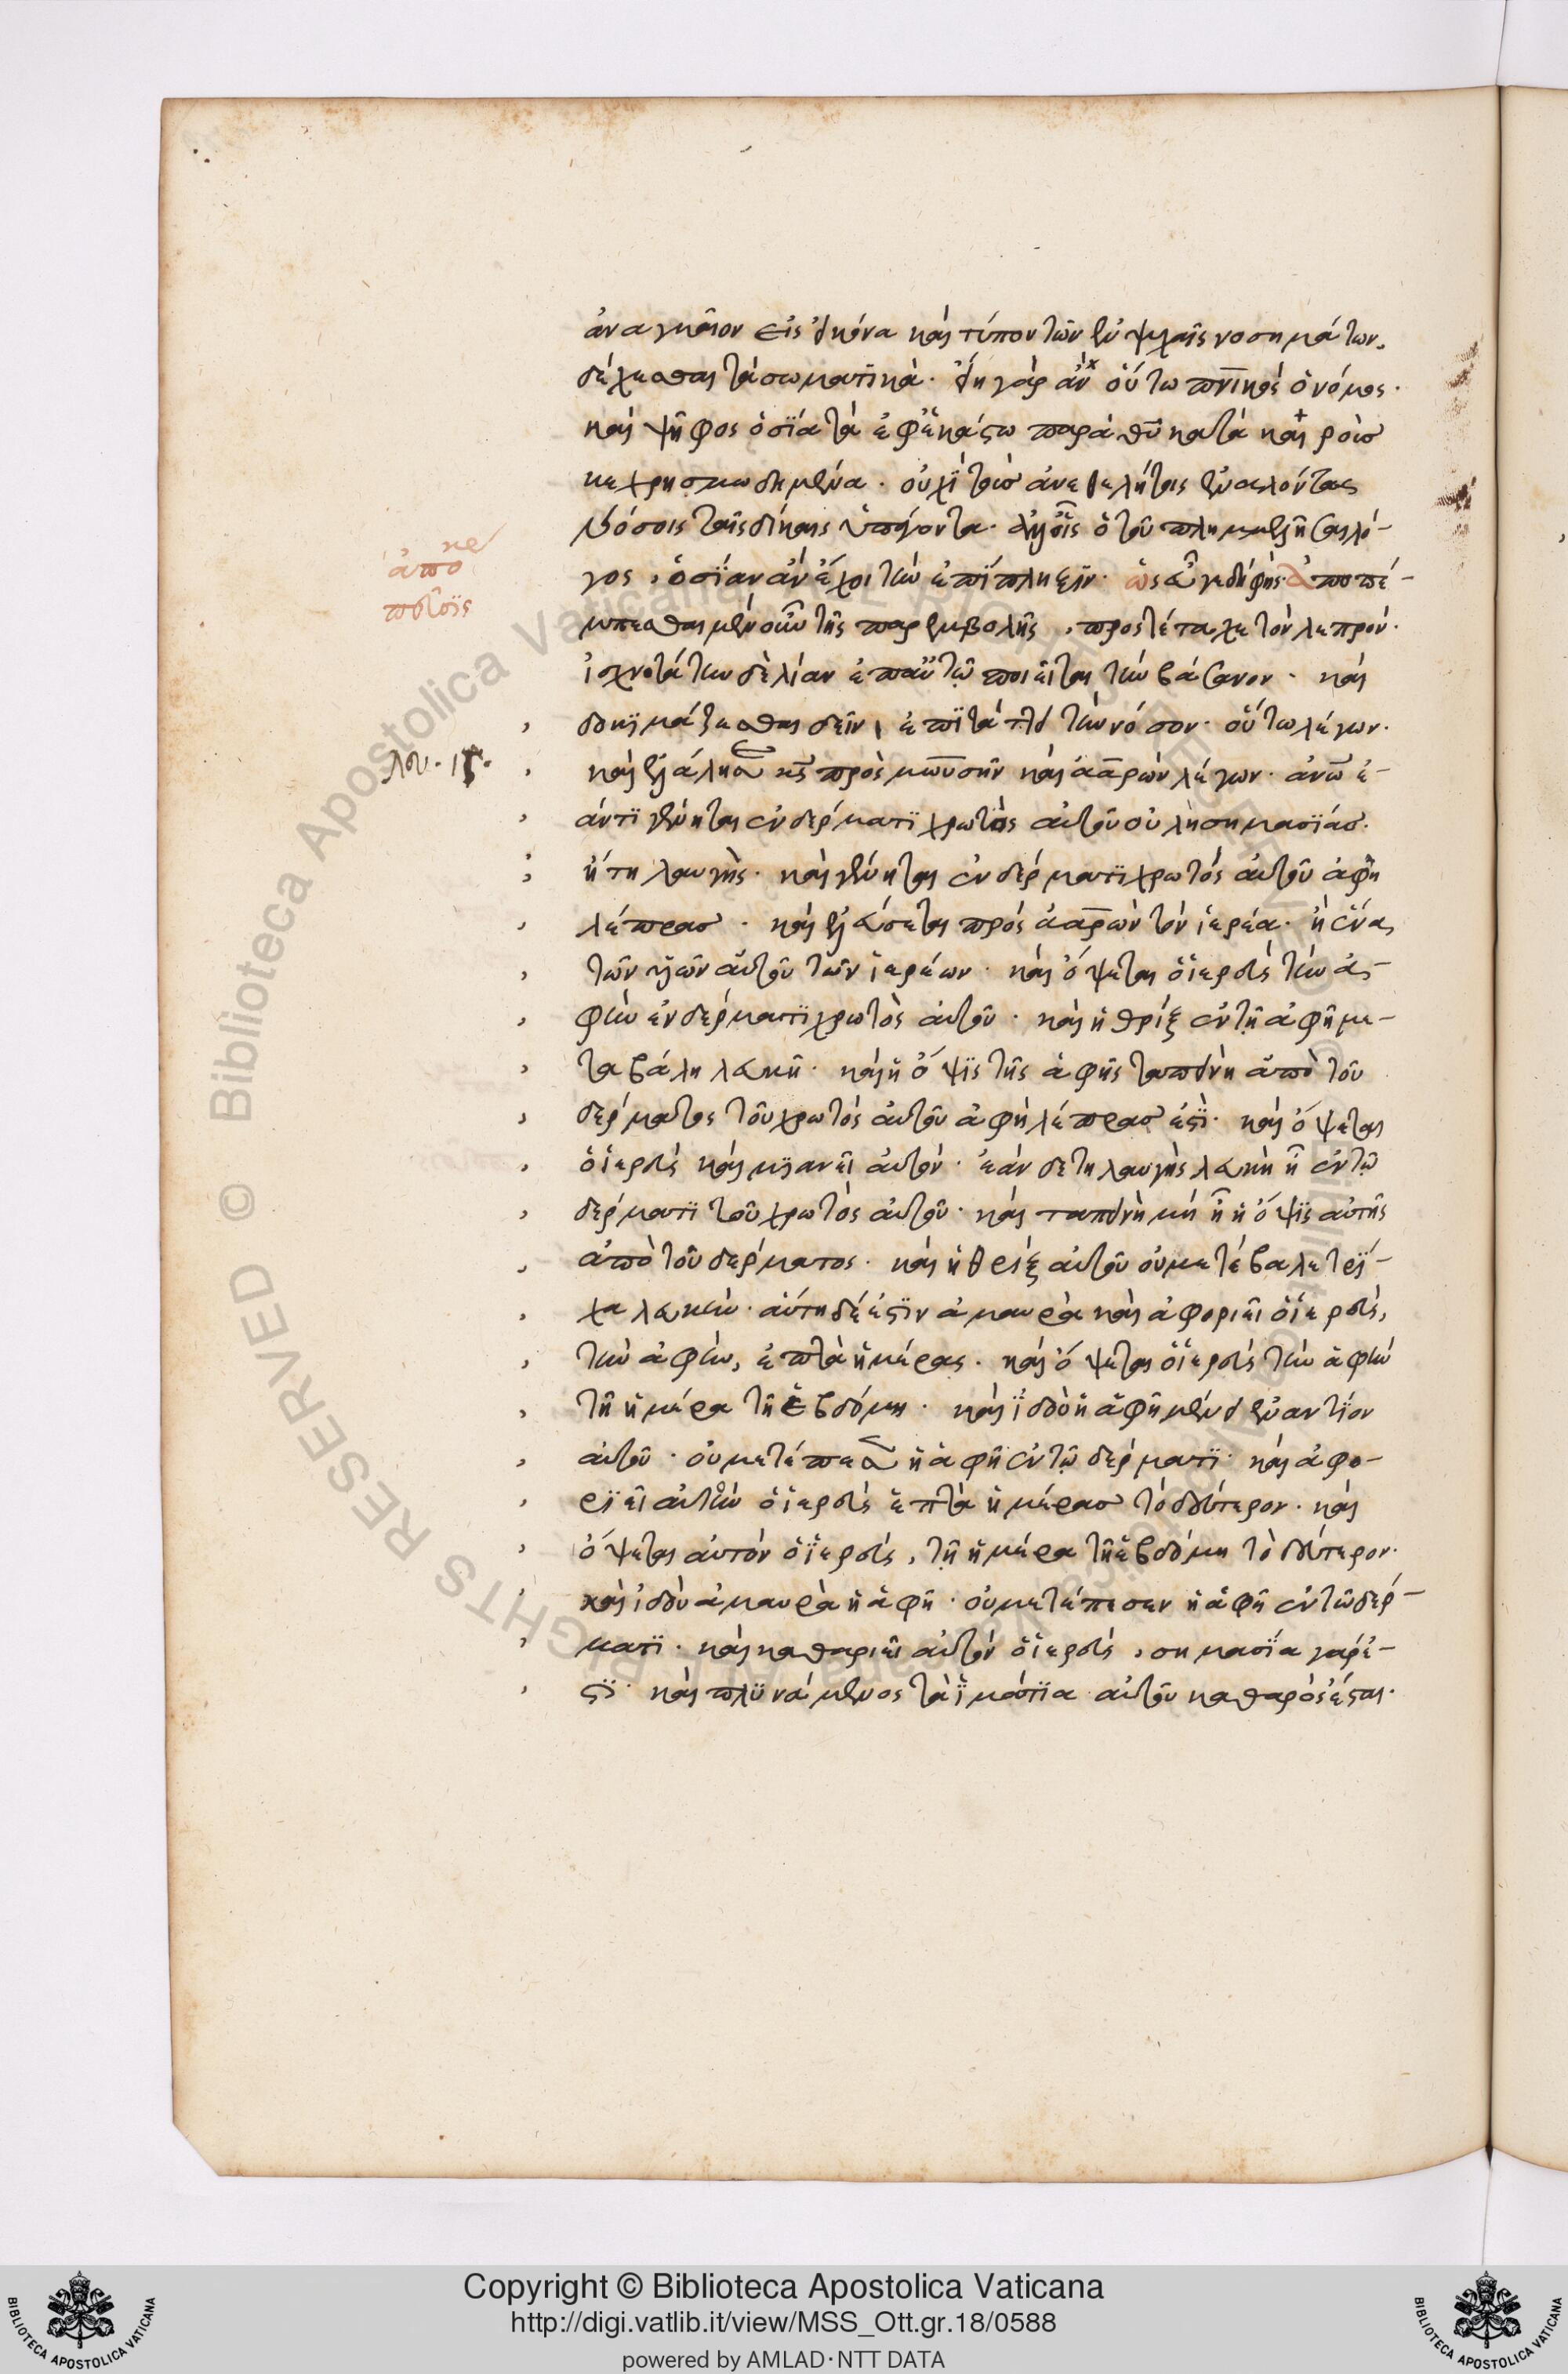 ἀναγκαῖον εἰς εἰκόνα καὶ τύπον τῶν ἐν ψυχαῖς νοσημάτων,
δέχεσθαι τὰ σωματικά. εἴη γὰρ ἂν οὕτω πνικὸς ὁ νόμος.
καὶ ψῆφος ὁσία τὰ ἐφ' ἑκάστω παρὰ θῦ κατὰ καιροὺσ
κεχρησμωδημένα. οὐχὶ τοῖσ ἀνεθελήτοις
νόσοις ταῖς δίκαις ὑπάγοντα. ὁ τοῦ πλημμελῆσαι λό-
γος, ὁσίαν ἂν ἔχοι τὴν ἐπίπληξιν. ἀποπέ-
μπεσθαι μὲν οὖν τῆς παρεμβολῆς, προστέταχε τὸν λεπρόν.
ἰσχνοτάτην δὲ λίαν ἐπ' αὐτῷ ποιεῖται τὴν βάσανον. καὶ
δοκιμάζεσθαι δεῖν, ἐπὶ τὴν νόσον. οὕτω λέγων.
λευ. ιγ.
καὶ ἐλάλησε κς πρὸς μωϋσῆν καὶ ἀαρὼν λέγων. ἀνω ἐ-
άν τινι γένηται ἐν δέρματι χρωτὸς αὐτοῦ οὐλὴ σημασίασ.
ἢ τηλαυγὴς. καὶ γένηται ἐν δέρματι χρωτὸς αὐτοῦ ἁφὴ
λέπρασ. καὶ ἐλεύσεται πρὸς ἀαρὼν τὸν ἱερέα. ἢ ἕνα,
τῶν υἱῶν αὐτοῦ τῶν ἱερέων. καὶ ὄψεται ὁ ἱερεὺς τὴν ἁ-
φὴν ἐν δέρματι χρωτὸς αὐτοῦ. καὶ ἡ θρὶξ ἐν τῇ ἁφῇ με-
ταβάλη λευκή. καὶ ἡ ὄψις τῆς ἁφῆς ταπεινὴ ἀπὸ τοῦ
δέρματος τοῦ χρωτὸς αὐτοῦ ἁφὴ λέπρασ ἐστί. καὶ ὄψεται
ὁ ἱερεὺς καὶ μιανεῖ αὐτόν. ἐὰν δὲ τηλαυγὴς λευκὴ ἦ ἐν τῷ
δέρματι τοῦ χρωτὸς αὐτοῦ. καὶ ταπεινὴ μὴ ἦ ἡ ὄψις αὐτῆς
ἀπὸ τοῦ δέρματος. καὶ ἡ θρὶξ αὐτοῦ οὐ μετέβαλε τρί-
χα λευκήν. αὕτη δέ ἐστιν ἀμαυρὰ καὶ ἀφοριεῖ ὁ ἱερεὺς,
τὴν ἁφὴν, ἑπτὰ ἡμέρας. καὶ ὄψεται ὁ ἱερεὺς τὴν ἁφὴν
τῇ ἡμέρα τῇ ἑβδόμη. καὶ ἰδοὺ ἡ ἁφὴ μένει ἐναντίον
αὐτοῦ. οὐ μετέπεσε ἡ ἁφὴ ἐν τῷ δέρματι. καὶ ἀφο-
ριεῖ αὐτὸν ὁ ἱερεὺς ἑπτὰ ἡμέρασ τὸ δεύτερον. καὶ
ὄψεται αὐτὸν ὁ ἱερεὺς, τῇ ἡμέρα τῇ ἑβδόμη τὸ δεύτερον.
καὶ ἰδοὺ ἀμαυρὰ ἡ ἁφή. οὐ μετέπεσεν ἡ ἁφὴ ἐν τῷ δέρ-
ματι. καὶ καθαριεῖ αὐτὸν ὁ ἱερεὺς, σημασία γάρ ἐ-
στι. καὶ πλυνάμενος τὰ ἱμάτια αὐτοῦ καθαρὸς ἔσται.
© Biblioteca Apostolica Vaticana. ALL RIGHTS RESERVED
Copyright © Biblioteca Apostolica Vaticana
http://digi.vatlib.it/view/MSS_Ott.gr.18/0588
powered by AMLAD·NTT DATA
BIBLIOTECA APOSTOLICA VATICANA
BIBLIOTECA APOSTOLICA VATICANA